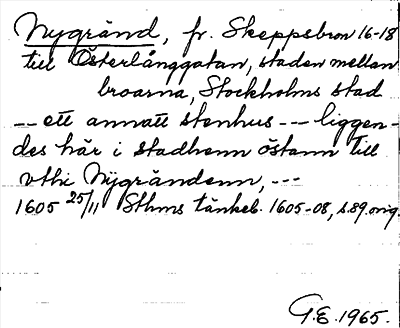 Nygränd, fr. Skeppsbron 16-18
till Österlånggatan, staden mellan
broarna, Stockholms stad
-- ett annatt stenhus --- liggen-
des här i stadhenn östann till
vthi Nÿgrändenn, ---
1605 25/11 Sthms tänkeb. 1605-08, s.89. orig.
G.E. 1965.